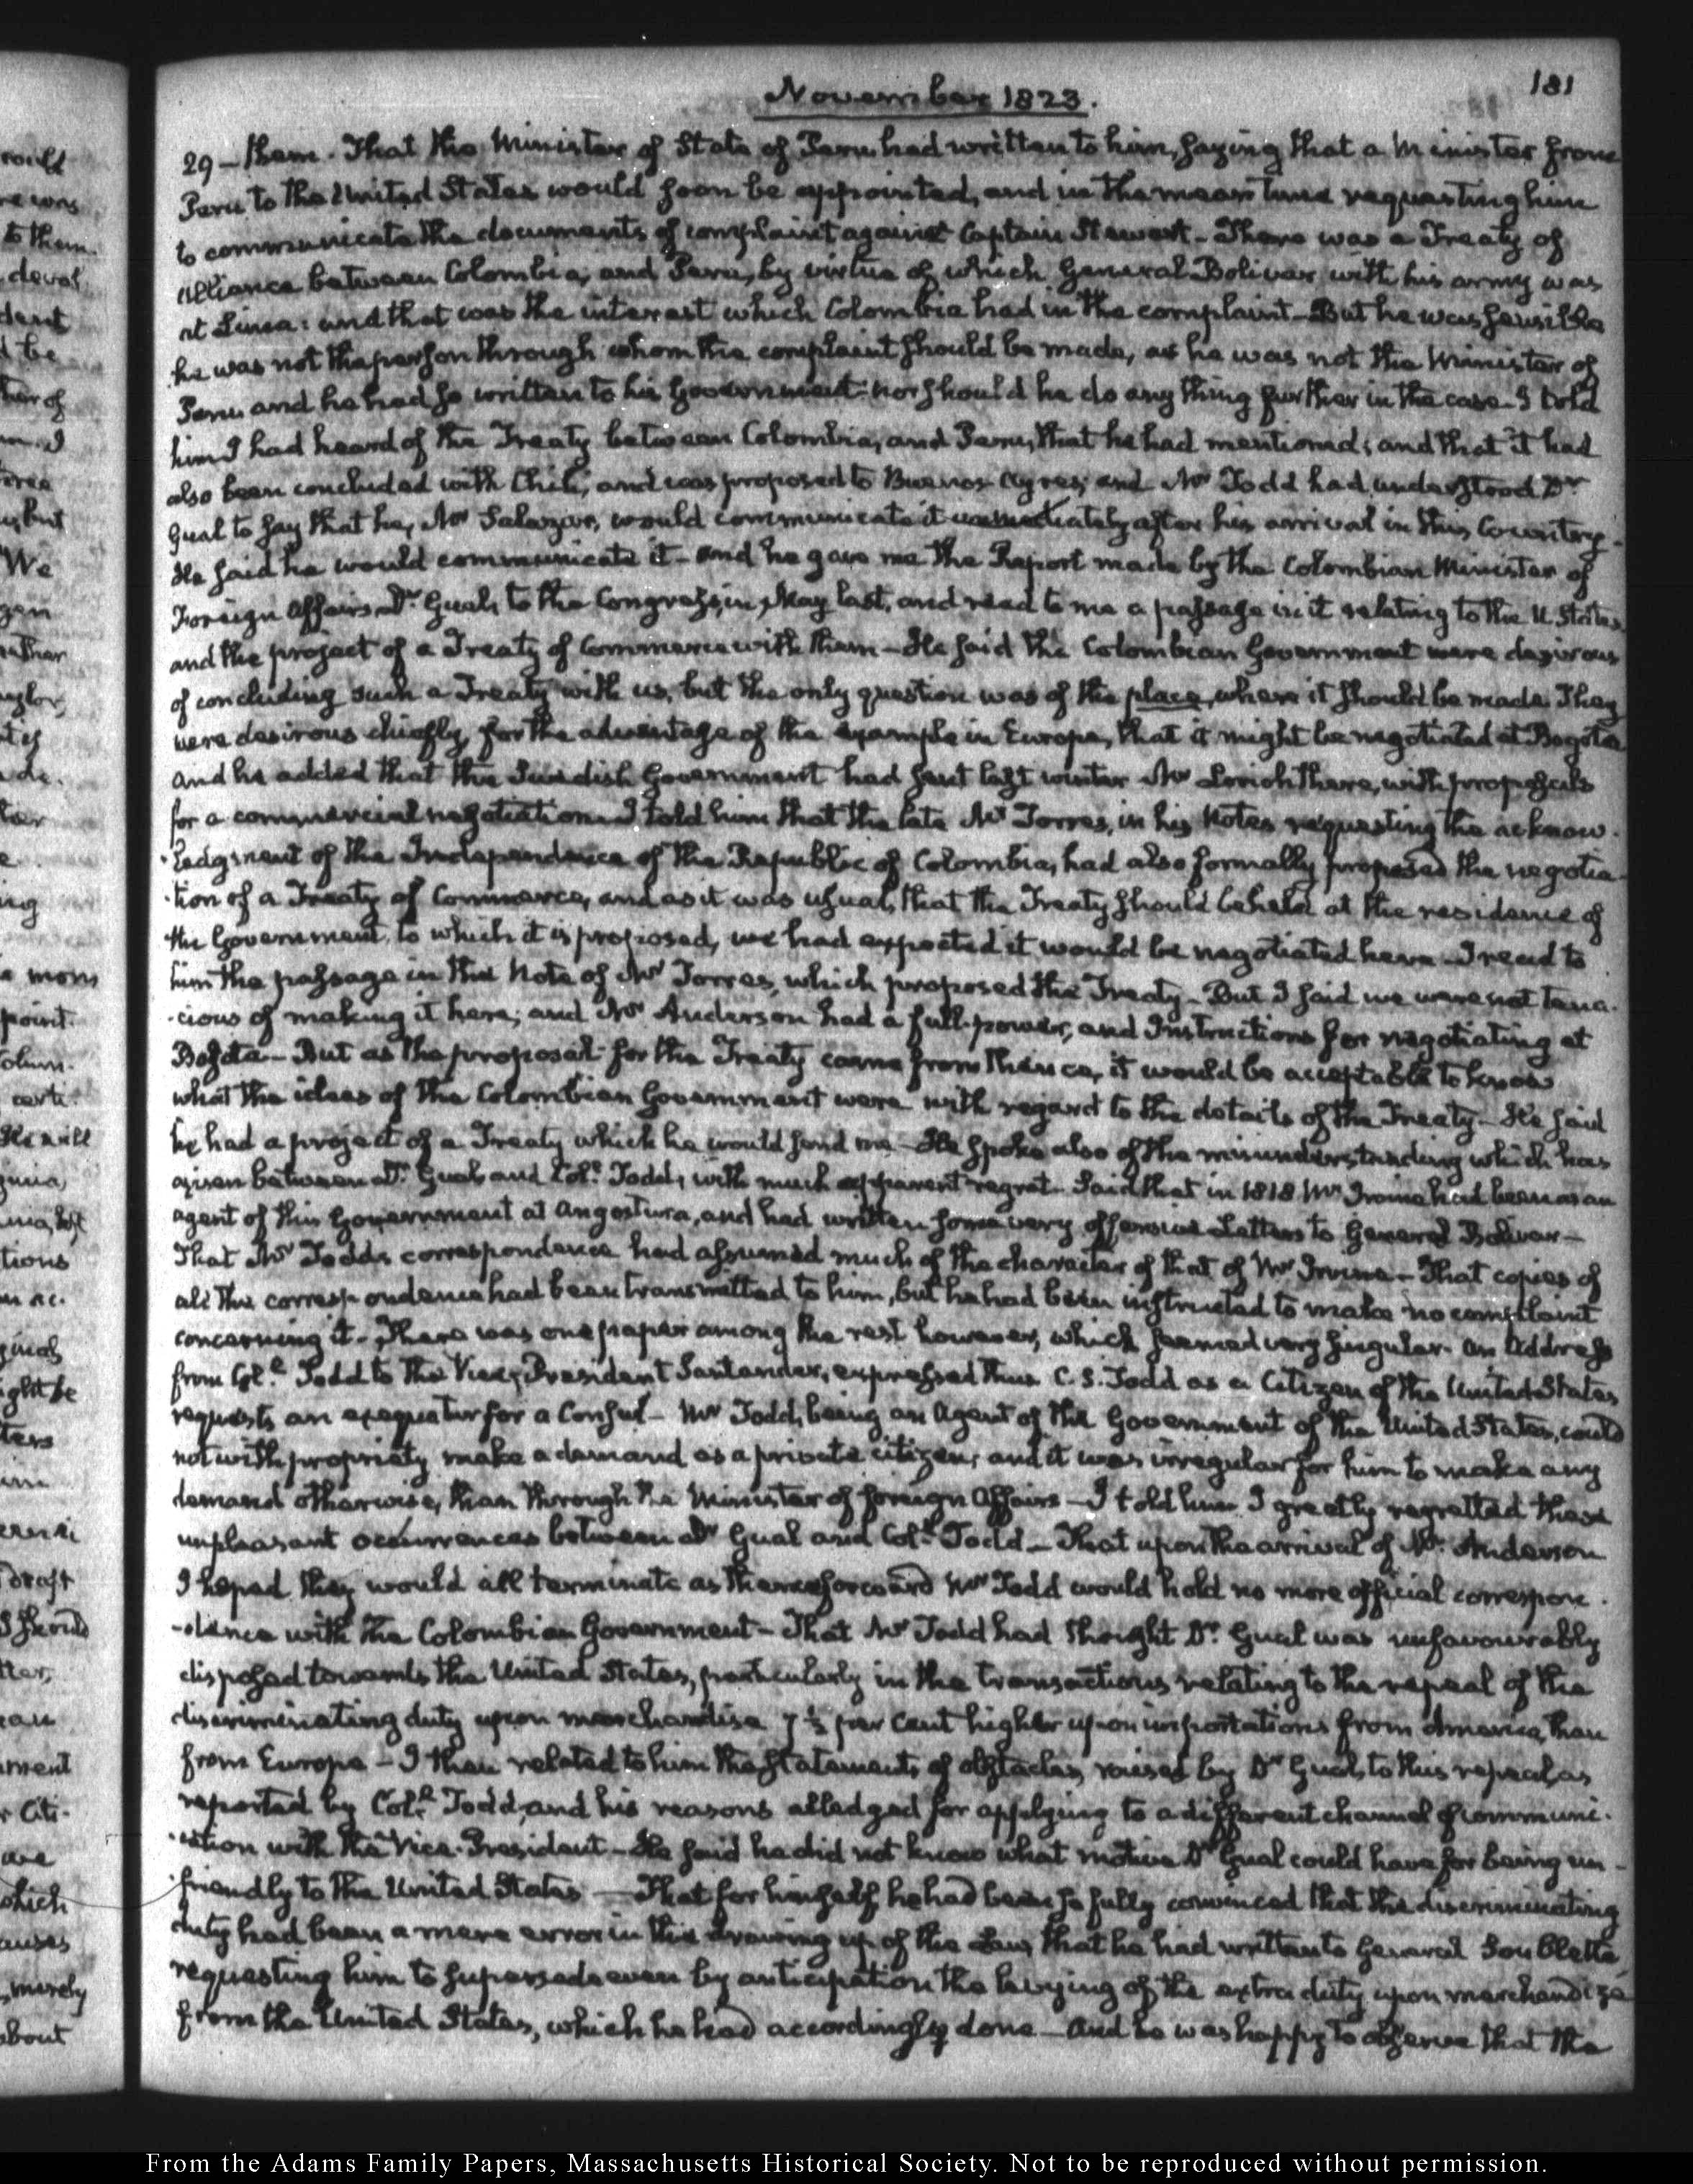 November 1823.
181
29 – them. That the Minister of State of Peru had written to him, saying that a Minister from
Peru to the United States would soon be appointed, and in the mean time requesting him
to communicate the documents of complaint against Captain Stewart – There was a Treaty of
Alliance between Colombia, and Peru, by virtue of which General Bolivar with his army was
at Lima: and that was the interest which Colombia had in the complaint – But he was sensible
he was not the person through whom the complaint should be made, as he was not the Minister of
Peru and he had so written to his Government – nor should he do any thing further in the case – I told
him I had heard of the Treaty between Colombia, and Peru, that he had mentioned; and that it had
also been concluded with Chili, and was proposed to Buenos-Ayres; and Mr Todd had understood Dr
Gual to say that he, Mr Salazar, would communicate it immediately after his arrival in this Country –
He said he would communicate it – and he gave me the Report made by the Colombian Minister of
Foreign Affairs Dr Gual, to the Congress, in May last, and read to me a passage in it relating to the U. States
and the project of a Treaty of Commerce with them – He said the Colombian Government were desirous
of concluding such a Treaty with us, but the only question was of the place, where it should be made. They
were desirous chiefly, for the advantage of the example in Europe, that it might be negotiated at Bogota
and he added that the Swedish Government had sent last winter Mr Lorich there, with proposals
for a commercial negotiation – I told him that the late Mr Torres, in his Notes requesting the acknow-
-ledgment of the Independence of the Republic of Colombia, had also formally proposed the negotia-
-tion of a Treaty of Commerce, and as it was usual, that the Treaty should be held at the residence of
the Government, to which it is proposed, we had expected it would be negotiated here – I read to
him the passage in the Note of Mr Torres, which proposed the Treaty – But I said we were not tena-
-cious of making it here; and Mr Anderson had a full-power, and Instructions for negotiating at
Bogota – But as the proposal for the Treaty came from thence, it would be acceptable to know
what the ideas of the Colombian Government were with regard to the details of the Treaty – He said
he had a project of a Treaty which he would send me – He spoke also of the misunderstanding which has
arisen between Dr Gual and Col. Todd, with much apparent regret – Said that in 1818 Mr Irvine had been as an
agent of this Government at Angostura, and had written some very offensive Letters to General Bolivar –
That Mr Todd's correspondence had assumed much of the character of that of Mr Irvine – That copies of
all the correspondence had been transmitted to him, but he had been instructed to make no complaint
concerning it – There was one paper among the rest however, which seemed very singular. An Address
from Col. Todd to the Vice-President Santander, expressed thus C. S. Todd as a Citizen of the United States,
requests an exequatur for a Consul – Mr Todd, being an Agent of the Government of the United States, could
not with propriety make a demand as a private citizen; and it was irregular for him to make any
demand otherwise, than through the Minister of foreign Affairs – I told him I greatly regretted these
unpleasant occurrences between Dr Gual and Col. Todd – That upon the arrival of Mr. Anderson
I hoped they would all terminate as thenceforward Mr Todd would hold no more official correspon-
-dence with the Colombian Government – That Mr Todd had thought Dr. Gual was unfavourably
disposed towards the United States, particularly in the transactions relating to the repeal of the
discriminating duty upon merchandise 7 ½ per Cent higher upon importations from America, than
from Europe – I then related to him the statements of obstacles, raised by Dr Gual, to this repeal as
reported by Col. Todd, and his reasons alledged for applying to a different channel of communi-
-cation with the Vice-President – He said he did not know what motive Dr Gual could have for being un-
-friendly to the United States – That for himself he had been so fully convinced that the discriminating
duty had been a mere error in the drawing up of the Law, that he had written to General Soublette,
requesting him to supersede even by anticipation the levying of the extra duty upon merchandize
from the United States, which he had accordingly done – And he was happy to observe that the
From the Adams Family Papers, Massachusetts Historical Society. Not to be reproduced without permission.